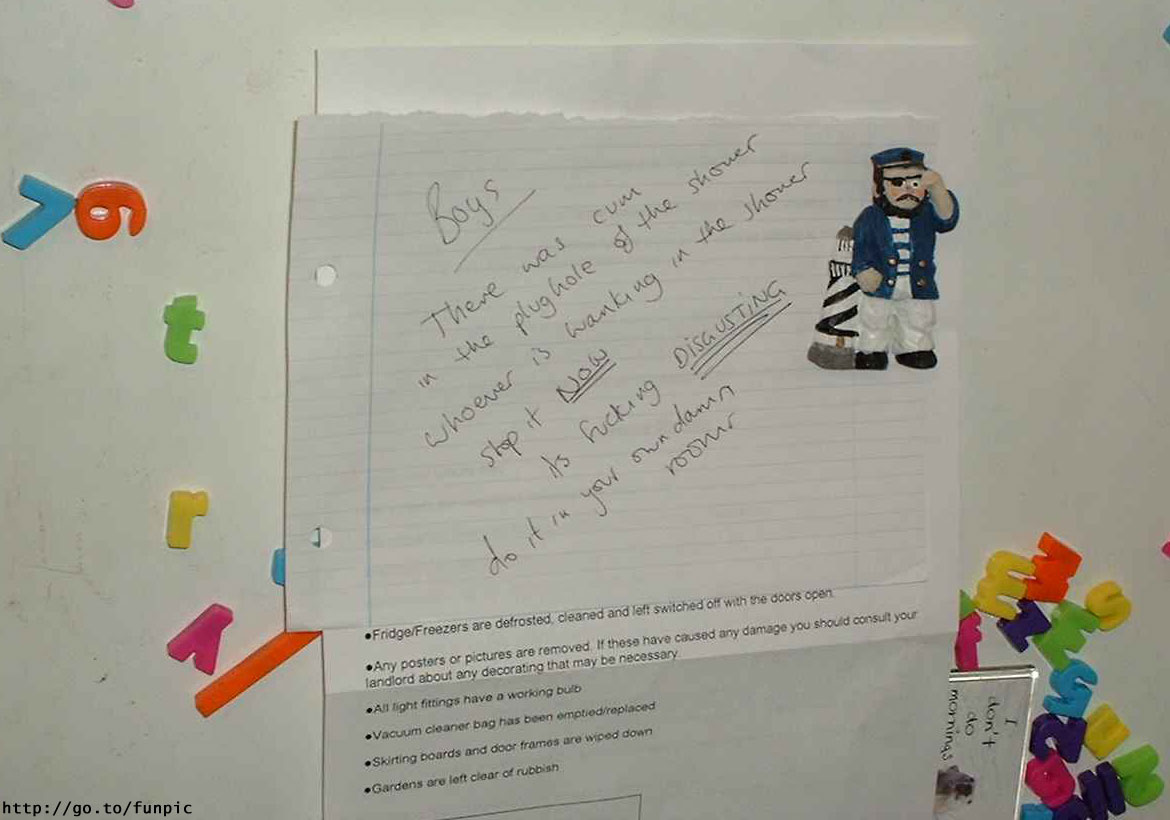 Boys
There was cum
in the plughole of the shower
whoever is wanking in the shower
stop it NOW
its fucking DISGUSTING
do it in your own damn
rooms
•Fridge/Freezers are defrosted, cleaned and left switched off with the doors open.
•Any posters or pictures are removed. If these have caused any damage you should consult your
landlord about any decorating that may be necessary.
•All light fittings have a working bulb
•Vacuum cleaner bag has been emptied/replaced
•Skirting boards and door frames are wiped down
•Gardens are left clear of rubbish
I
don't
do
mornings
t
r
http://go.to/funpic